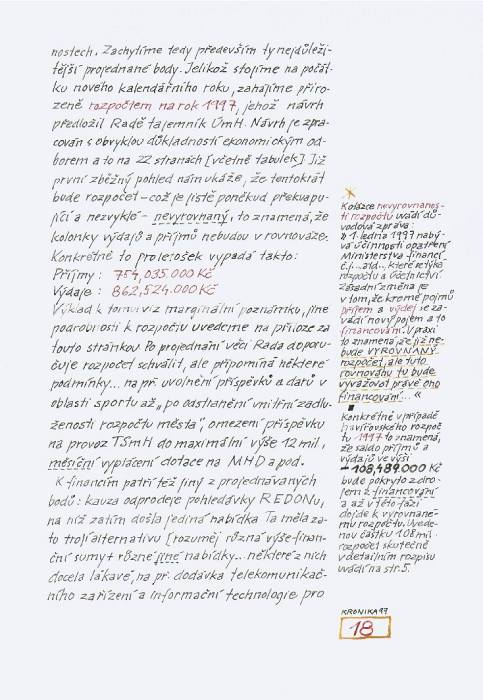 nostech. Zachytíme tedy především ty nejdůleži-
tější projednané body. Jelikož stojíme na počát-
ku nového kalendářního roku, zahájíme přiro-
zeně rozpočtem na rok 1997, jehož návrh
předložil Radě tajemník ÚmH. Návrh je zpra-
cován s obvyklou důkladností ekonomickým od-
borem a to na 22 stranách [včetně tabulek]. Již
první zběžný pohled nám ukáže, že tentokrát
bude rozpočet – což je jistě poněkud překvapu-
jící a nezvyklé – nevyrovnaný, to znamená, že
kolonky výdajů a příjmů nebudou v rovnováze.
Konkrétně to prolerošek vypadá takto:
Příjmy: 754,035.000 Kč
Výdaje: 862,524.000 Kč
Výklad k tomu viz marginální poznámku, jiné
podrobnosti k rozpočtu uvedeme na příloze za
touto stránkou. Po projednání věci Rada doporu-
čuje rozpočet schválit, ale připomíná některé
podmínky... na př. uvolnění příspěvků a darů v
oblasti sportu až „po odstranění vnitřní zadlu-
ženosti rozpočtu města", omezení příspěvku
na provoz TSmH do maximální výše 12 mil.,
měsíční vyplácení dotace na MHD a pod.
K financím patří též jiný z projednávaných
bodů: kauza odprodeje pohledávky REDONu,
na niž zatím došla jediná nabídka. Ta měla za-
to trojí alternativu [rozuměj různá výše finan-
ční sumy + různé jiné nabídky... některé z nich
docela lákavé, na př. dodávka telekomunikač-
ního zařízení a informační technologie pro
*
Kotázce nevyrovnanos-
ti rozpočtu uvádí dů-
vodová zpráva:
» 1. ledna 1997 nabý-
vá účinnosti opatření
Ministerstva financí
č.j....atd.., které se týká
rozpočtu a účetnictví.
Zásadní změna je
v tom, že kromě pojmů
příjem a výdej se za-
vádí nový pojem a to
financování. V praxi
to znamená, že již ne-
bude VYROVNANÝ
rozpočet, ale tuto
rovnováhu tu bude
vyvažovat právě ono
financování... «
Konkrétně v případě
havířovského rozpoč-
tu 1997 to znamená,
že saldo příjmů a
výdajů ve výši
– 108,489.000 Kč
bude pokryto zdro-
jem z financování
a až v této fázi
dojde k vyrovnané-
mu rozpočtu. Uvede-
nou částku 108 mil.
rozpočet skutečně
v detailním rozpisu
uvádí na str. 5.
KRONIKA 97
18